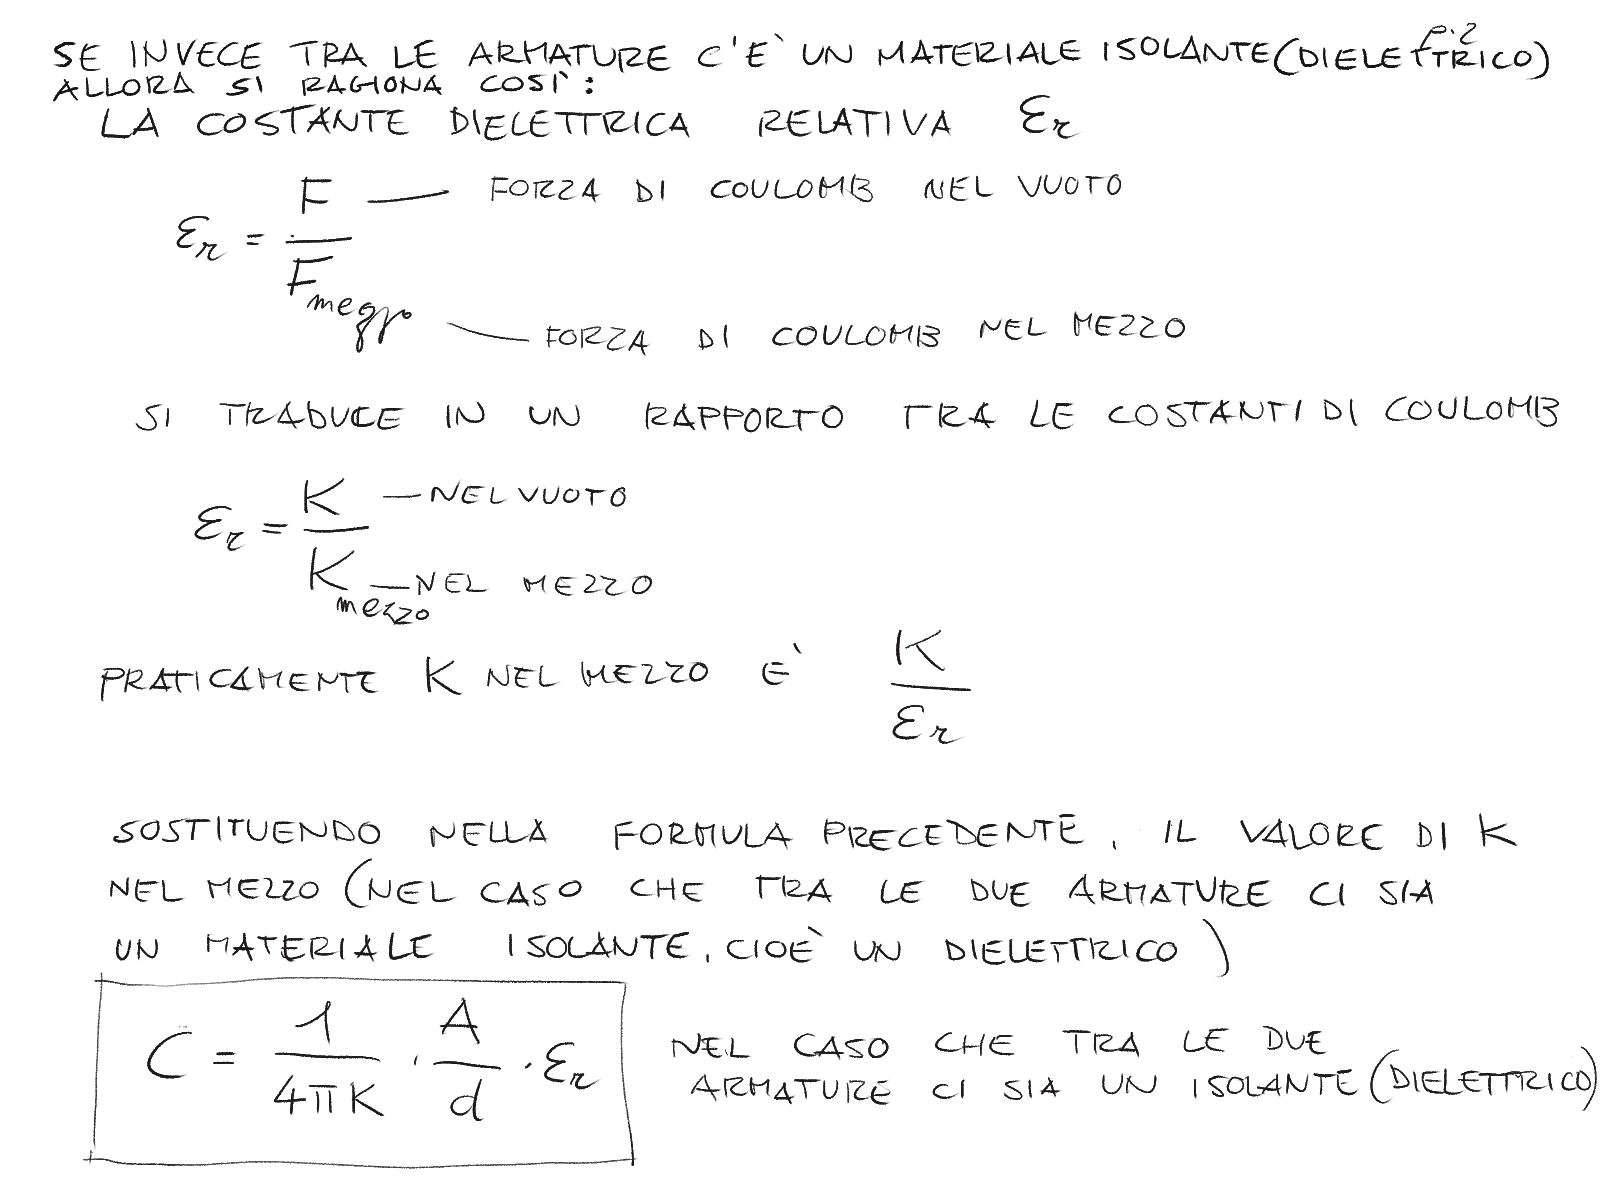 p.2
SE INVECE TRA LE ARMATURE C'E` UN MATERIALE ISOLANTE (DIELETTRICO)
ALLORA SI RAGIONA COSÌ:
LA COSTANTE DIELETTRICA RELATIVA εr
εr = F / F mezzo
F — FORZA DI COULOMB NEL VUOTO
F mezzo — FORZA DI COULOMB NEL MEZZO
SI TRADUCE IN UN RAPPORTO TRA LE COSTANTI DI COULOMB
εr = K / K mezzo
K — NEL VUOTO
K mezzo — NEL MEZZO
PRATICAMENTE K NEL MEZZO E` K / εr
SOSTITUENDO NELLA FORMULA PRECEDENTE, IL VALORE DI K
NEL MEZZO (NEL CASO CHE TRA LE DUE ARMATURE CI SIA
UN MATERIALE ISOLANTE, CIOE` UN DIELETTRICO)
C = 1 / 4πK · A / d · εr
NEL CASO CHE TRA LE DUE
ARMATURE CI SIA UN ISOLANTE (DIELETTRICO)